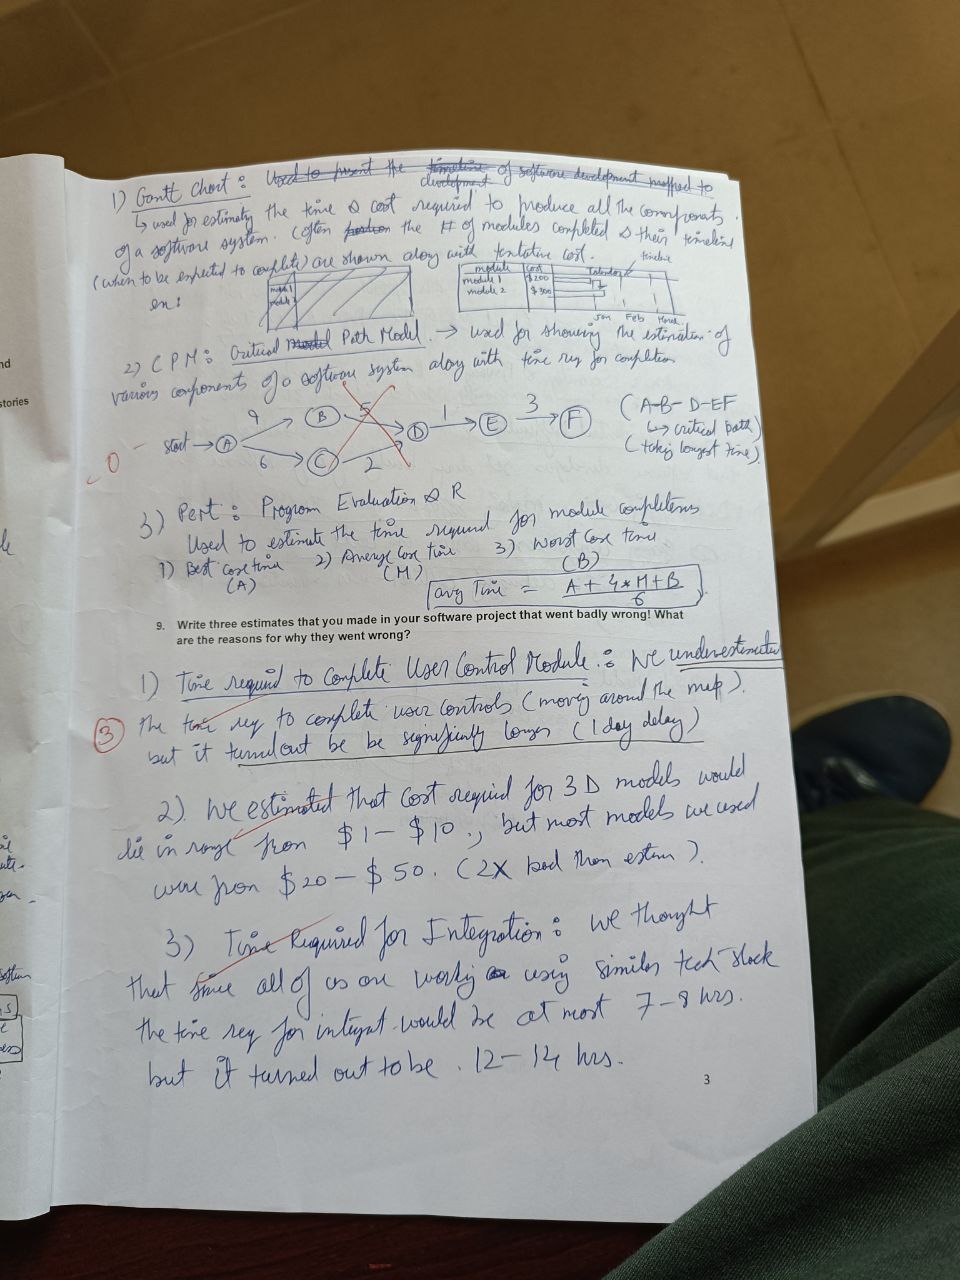 1) Gantt Chart : Used to present the timeline of software development mapped to
development
↳ used for estimating the time & cost required to produce all the components
of a software system. (often the # of modules completed & their timeline
(when to be expected to complete) are shown along with tentative cost.
ex :
module 1
module 2
module cost Calendar timeline
module 1 $200
module 2 $300
Jan Feb March
2) CPM : Critical Model Path Model. → used for showing the estimation of
various components of a software system along with time req for completion
start → A 9 B 5 D 1 E 3 F
6 C 2
(A-B-D-EF
↳ critical path)
(taking longest time)
0
3) Pert : Program Evaluation & R
Used to estimate the time required for module completions
1) Best Case time 2) Average Case Time 3) Worst Case time
(A) (M) (B)
avg Time = A + 4*M + B
6
9. Write three estimates that you made in your software project that went badly wrong! What
are the reasons for why they went wrong?
1) Time required to Complete User Control Module : We underestimated
3
the time req to complete user controls (moving around the map).
but it turned out be be significantly longer (1 day delay)
2). We estimated that cost required for 3D models would
lie in range from $1 - $10 ., but most models we used
were from $20 - $50. (2X bad than estim ).
3) Time Required for Integration : We thought
that since all of us are working using similar tech stack
the time req for integrat would be at most 7-8 hrs.
but it turned out to be . 12-14 hrs.
3
nd
stories